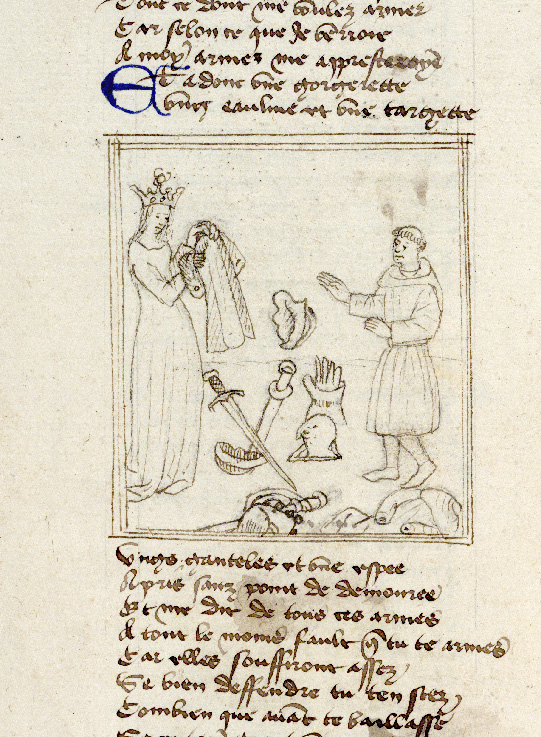 Dont ce dont me voulez armer
Car selon ce que je verroie
A moy armer me appresteroye
Et adonc une gorgerette
Ungz eaulme et une targette
Ungz ganteles et une espee
Apris sanz point de demouree
Et me dit de tous ces armes
A tout le moins fault q̃ tu te armes
Car elles souffiront assez
Se bien deffendre tu ten scez
Combien que avãt te baillasse